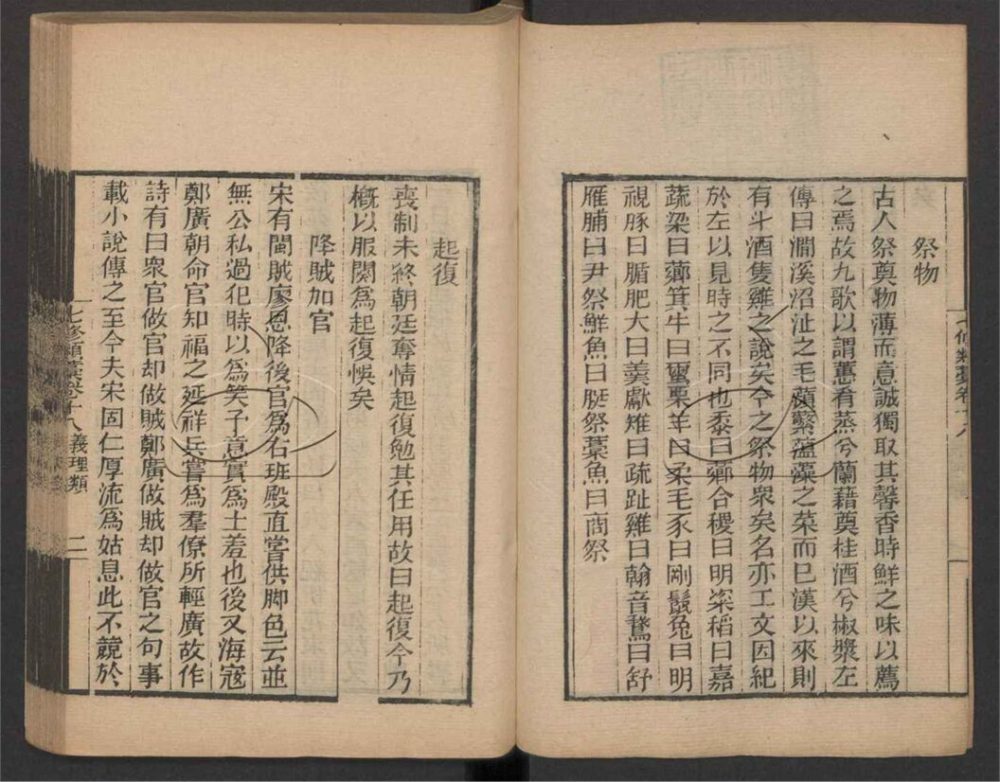 祭物
古人祭奠物薄而意誠獨取其馨香時鮮之味以薦
之焉故九歌以謂蕙肴蒸兮蘭藉奠桂酒兮椒漿左
傳曰澗溪沼沚之毛蘋蘩薀藻之菜而已漢以來則
有斗酒隻雞之說矣今之祭物衆矣名亦工文因紀
於左以見時之不同也黍曰薌合稷曰明粢稻曰嘉
蔬粱曰薌萁牛曰 栗羊曰柔毛豕曰剛鬛兔曰明
視豚曰腯肥犬曰羹獻雉曰疏趾雞曰翰音鵞曰舒
雁脯曰尹祭鮮魚曰脡祭藁魚曰商祭
起復
喪制未終朝廷奪情起復勉其任用故曰起復今乃
槪以服闋爲起復悞矣
降賊加官
宋有閩賊廖恩降後官爲右班殿直嘗供脚色云並
無公私過犯時以爲笑子意實爲士羞也後又海寇
鄭廣朝命官知福之延祥兵嘗爲羣僚所輕廣故作
詩有曰衆官做官却做賊鄭廣做賊却做官之句事
載小說傳之至今夫宋固仁厚流爲姑息此不競於
七修類藁卷十八 義理類 二